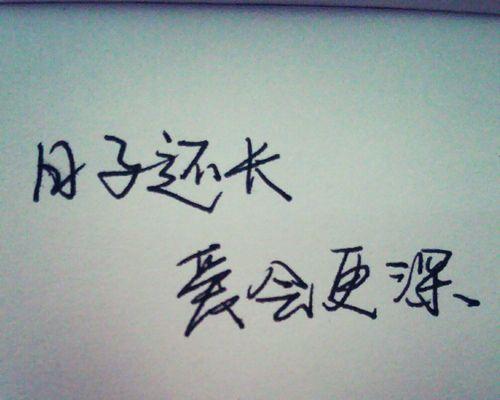 日子还长
爱会更深